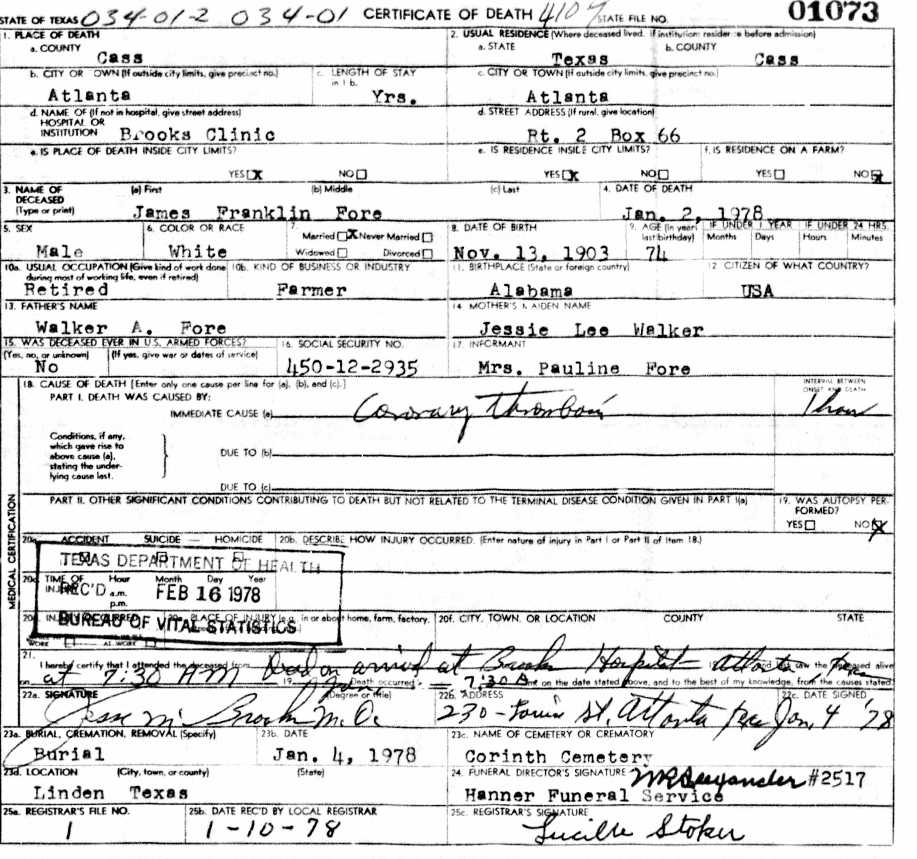 STATE OF TEXAS 034-01-2 034-01 CERTIFICATE OF DEATH 4107 STATE FILE NO. 01073
1. PLACE OF DEATH 2. USUAL RESIDENCE (Where deceased lived. If institution: residence before admission)
a. COUNTY a. STATE b. COUNTY
Cass Texas Cass
b. CITY OR OWN (If outside city limits, give precinct no.) c. LENGTH OF STAY in 1 b. c. CITY OR TOWN (If outside city limits, give precinct no.)
Atlanta Yrs. Atlanta
d. NAME OF (If not in hospital, give street address) d. STREET ADDRESS (If rural, give location)
HOSPITAL OR
INSTITUTION Brooks Clinic Rt. 2 Box 66
e. IS PLACE OF DEATH INSIDE CITY LIMITS? e. IS RESIDENCE INSIDE CITY LIMITS? f. IS RESIDENCE ON A FARM?
YES X NO YES X NO YES NO X
3. NAME OF DECEASED (Type or print) (a) First (b) Middle (c) Last 4. DATE OF DEATH
James Franklin Fore Jan. 2, 1978
5. SEX 6. COLOR OR RACE 7. Married X Never Married 8. DATE OF BIRTH 9. AGE (In years last birthday) IF UNDER 1 YEAR IF UNDER 24 HRS.
Widowed Divorced Months Days Hours Minutes
Male White Nov. 13, 1903 74
10a. USUAL OCCUPATION (Give kind of work done during most of working life, even if retired) 10b. KIND OF BUSINESS OR INDUSTRY 11. BIRTHPLACE (State or foreign country) 12 CITIZEN OF WHAT COUNTRY?
Retired Farmer Alabama USA
13. FATHER'S NAME 14 MOTHER'S MAIDEN NAME
Walker A. Fore Jessie Lee Walker
15. WAS DECEASED EVER IN U.S. ARMED FORCES? 16. SOCIAL SECURITY NO. 17. INFORMANT
(Yes, no, or unknown) (If yes, give war or dates of service)
No 450-12-2935 Mrs. Pauline Fore
MEDICAL CERTIFICATION
18. CAUSE OF DEATH [Enter only one cause per line for (a), (b), and (c).] INTERVAL BETWEEN ONSET AND DEATH
PART I. DEATH WAS CAUSED BY:
IMMEDIATE CAUSE (a) Coronary Thrombosis 1 hour
Conditions, if any, which gave rise to above cause (a), stating the underlying cause last.
DUE TO (b)
DUE TO (c)
PART II. OTHER SIGNIFICANT CONDITIONS CONTRIBUTING TO DEATH BUT NOT RELATED TO THE TERMINAL DISEASE CONDITION GIVEN IN PART I(a) 19. WAS AUTOPSY PERFORMED?
YES NO X
20a. ACCIDENT SUICIDE HOMICIDE 20b. DESCRIBE HOW INJURY OCCURRED. (Enter nature of injury in Part I or Part II of Item 18.)
TEXAS DEPARTMENT OF HEALTH
TIME OF Hour Month Day Year
a.m.
p.m.
REC'D FEB 16 1978
BUREAU OF VITAL STATISTICS
PLACE OF INJURY (e.g., in or about home, farm, factory, 20f. CITY, TOWN, OR LOCATION COUNTY STATE
21. I hereby certify that I attended the deceased from Dead on arrival at Brooks Hospital Atlanta and last saw the deceased alive
on at 7:30 AM 19 Death occurred 7:30 A on the date stated above, and to the best of my knowledge, from the causes stated.
22a. SIGNATURE (Degree or title) 22b. ADDRESS 22c. DATE SIGNED
Jesse M Brooks M.D. 230 St. Atlanta Jan. 4 '78
23a. BURIAL, CREMATION, REMOVAL (Specify) 23b. DATE 23c. NAME OF CEMETERY OR CREMATORY
Burial Jan. 4, 1978 Corinth Cemetery
23d. LOCATION (City, town, or county) (State) 24. FUNERAL DIRECTOR'S SIGNATURE #2517
Linden Texas Hanner Funeral Service
25a. REGISTRAR'S FILE NO. 25b. DATE REC'D BY LOCAL REGISTRAR 25c. REGISTRAR'S SIGNATURE
1 1-10-78 Lucille Stoker